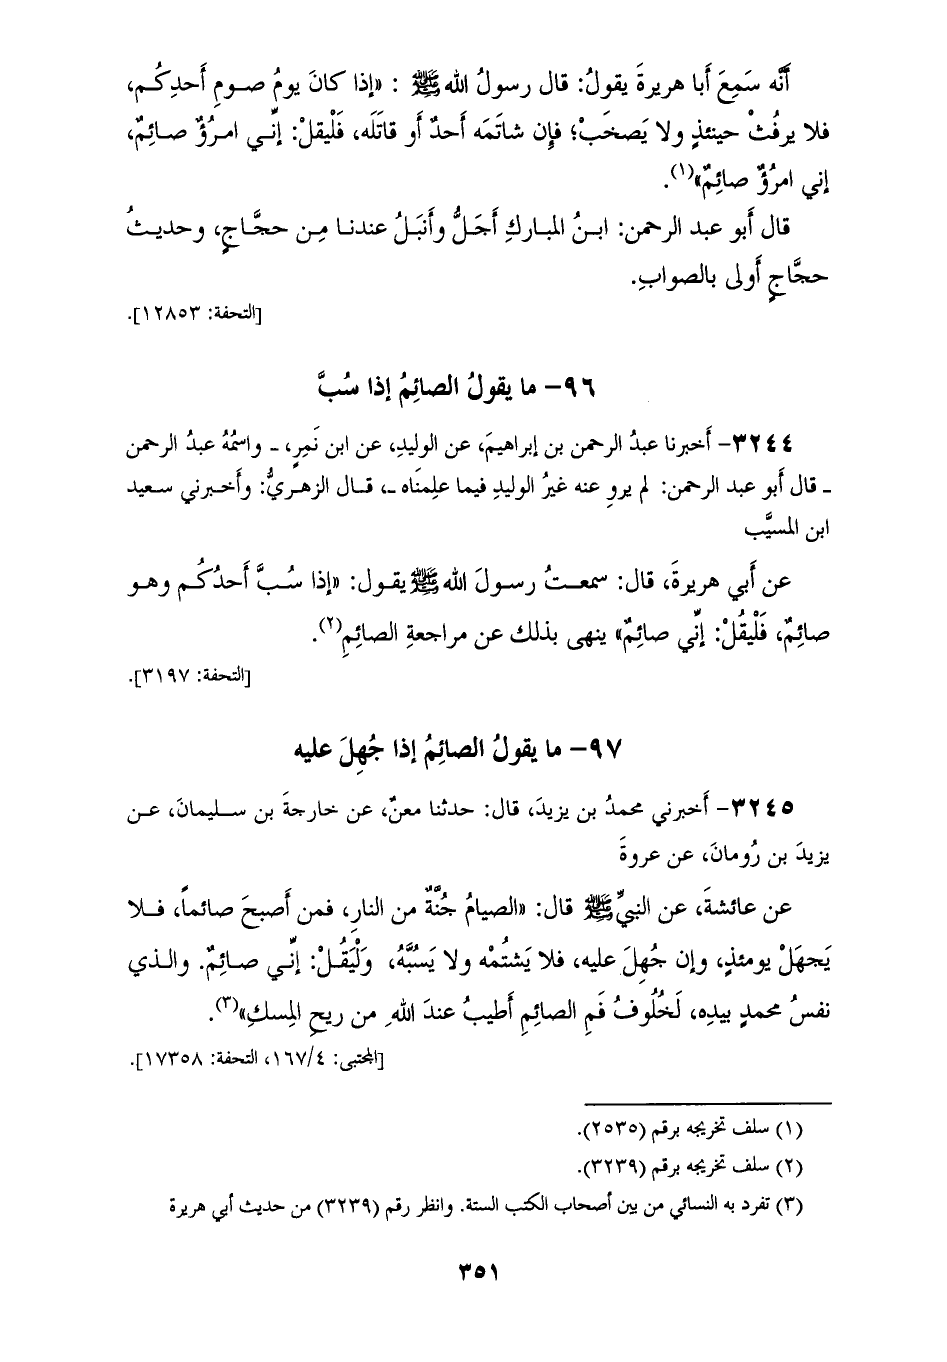 أنَّه سَمِعَ أبا هريرةَ يقولُ: قال رسولُ الله ﷺ : «إذا كانَ يومُ صومِ أَحدِكُم،
فلا يرفُثْ حينئذٍ ولا يَصخَبْ؛ فإن شاتَمَه أحدٌ أو قاتَلَه، فَلْيقلْ: إنّي امرُؤٌ صائِمٌ،
إني امرُؤٌ صائِمٌ»(١).
قال أبو عبد الرحمن: ابنُ المباركِ أجَلُّ وأنبَلُ عندنا مِن حجَّاجٍ، وحديثُ
حجَّاجٍ أَولى بالصوابِ.
[التحفة: ١٢٨٥٣].
٩٦- ما يقولُ الصائِمُ إذا سُبَّ
٣٢٤٤- أَخبرنا عبدُ الرحمن بن إبراهيمَ، عن الوليدِ، عن ابن نَمِرٍ، ـ واسمُهُ عبدُ الرحمن
ـ قال أبو عبد الرحمن: لم يروِ عنه غيرُ الوليدِ فيما علِمنَاه ـ، قال الزهريُّ: وأَخبرني سعيد
ابن المسيَّب
عن أبي هريرةَ، قال: سمعتُ رسولَ الله ﷺ يقول: «إذا سُبَّ أَحدُكُم وهو
صائِمٌ، فَلْيقُلْ: إنّي صائِمٌ» ينهى بذلك عن مراجعةِ الصائِمِ(٢).
[التحفة: ٣١٩٧].
٩٧- ما يقولُ الصائِمُ إذا جُهِلَ عليه
٣٢٤٥- أَخبرني محمدُ بن يزيدَ، قال: حدثنا معنٌ، عن خارجةَ بن سليمانَ، عن
يزيدَ بن رُومانَ، عن عروةَ
عن عائشةَ، عن النبيِّ ﷺ قال: «الصيامُ جُنَّةٌ من النارِ، فمن أَصبحَ صائماً، فلا
يَجهَلْ يومئذٍ، وإن جُهِلَ عليه، فلا يَشتُمْه ولا يَسُبَّهُ، وَلْيَقُلْ: إنّي صائِمٌ. والذي
نفسُ محمدٍ بيدِه، لَخُلُوفُ فَمِ الصائِمِ أَطيبُ عندَ اللهِ من ريحِ المِسكِ»(٣).
[المجتبى: ١٦٧/٤، التحفة: ١٧٣٥٨].
(١) سلف تخريجه برقم (٢٥٣٥).
(٢) سلف تخريجه برقم (٣٢٣٩).
(٣) تفرد به النسائي من بين أصحاب الكتب الستة. وانظر رقم (٣٢٣٩) من حديث أبي هريرة
٣٥١